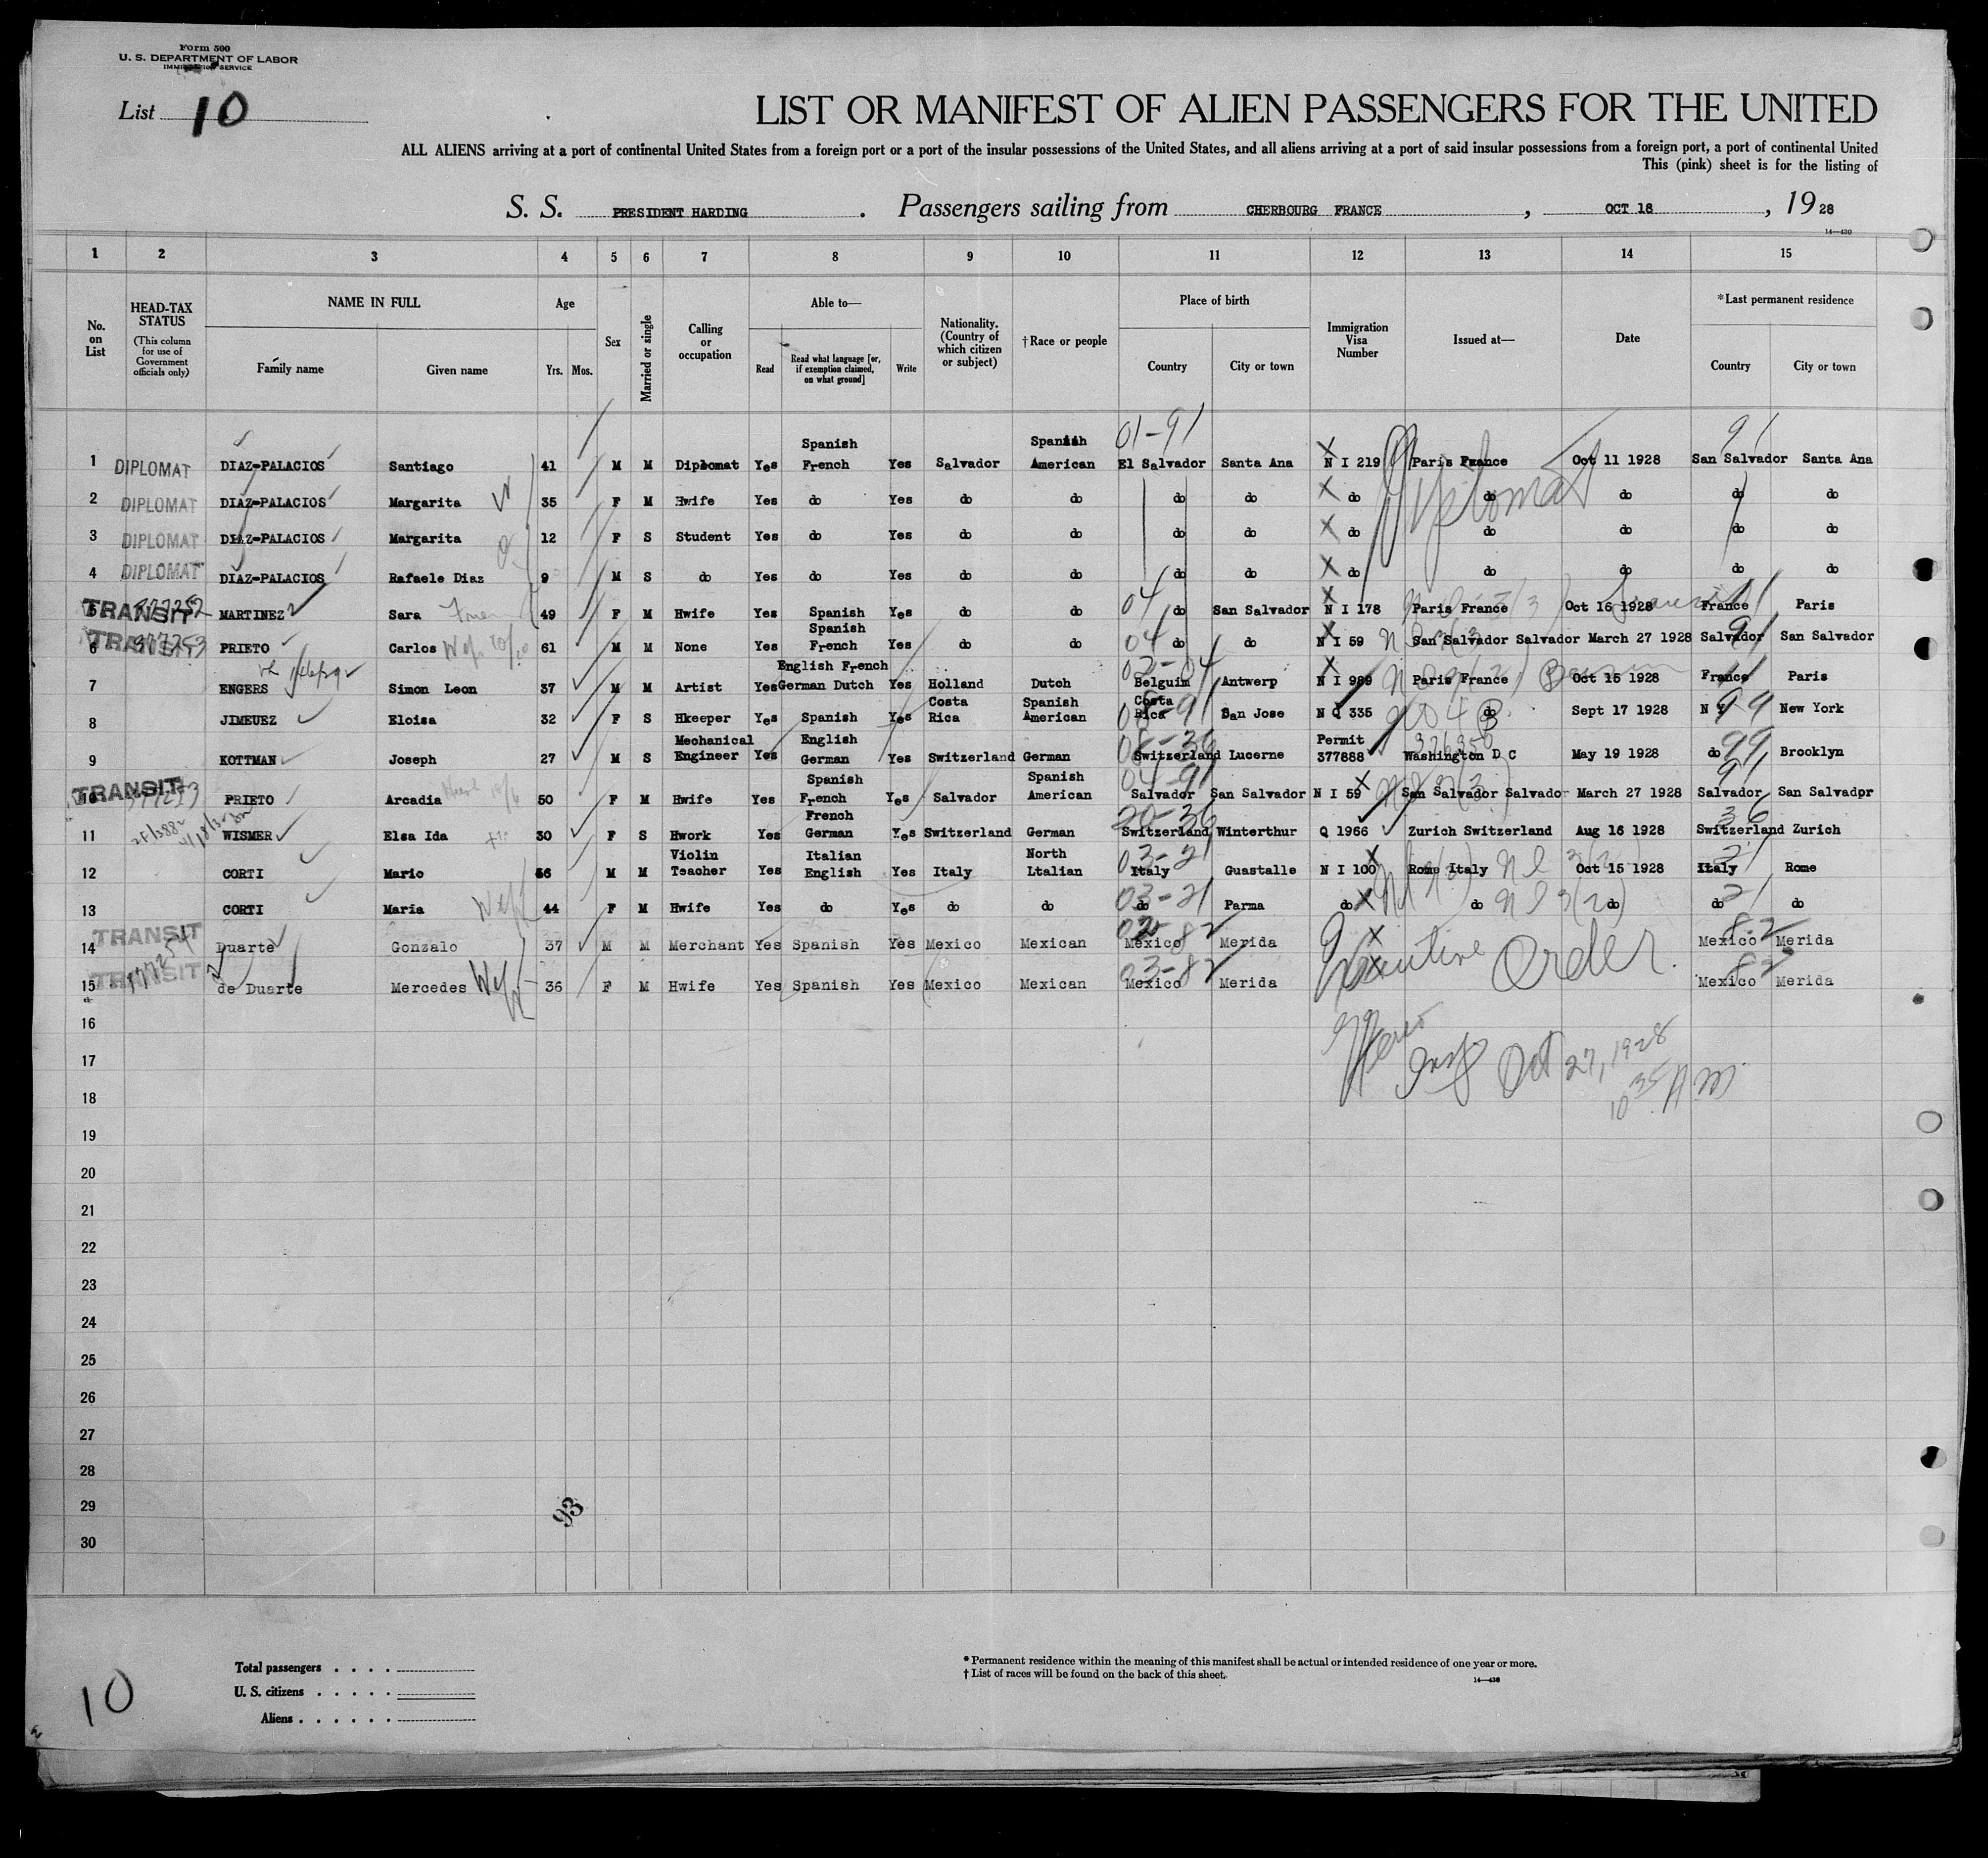 Form 500
U. S. DEPARTMENT OF LABOR
IMMIGRATION SERVICE
List 10
LIST OR MANIFEST OF ALIEN PASSENGERS FOR THE UNITED
ALL ALIENS arriving at a port of continental United States from a foreign port or a port of the insular possessions of the United States, and all aliens arriving at a port of said insular possessions from a foreign port, a port of continental United
This (pink) sheet is for the listing of
S. S. PRESIDENT HARDING . Passengers sailing from CHERBOURG FRANCE , OCT 18 , 19 28
14—430
1 2 3 4 5 6 7 8 9 10 11 12 13 14 15
No. on List
HEAD-TAX STATUS (This column for use of Government officials only)
NAME IN FULL Family name Given name
Age Yrs. Mos.
Sex
Married or single
Calling or occupation
Able to— Read Read what language [or, if exemption claimed, on what ground] Write
Nationality. (Country of which citizen or subject)
†Race or people
Place of birth Country City or town
Immigration Visa Number
Issued at—
Date
*Last permanent residence Country City or town
1 DIPLOMAT DIAZ-PALACIOS Santiago 41 M M Diplomat Yes Spanish French Yes Salvador Spanish American 01-91 El Salvador Santa Ana N I 219 Paris France Oct 11 1928 91 San Salvador Santa Ana
2 DIPLOMAT DIAZ-PALACIOS Margarita W 35 F M Hwife Yes do Yes do do do do do do Diplomat do do do
3 DIPLOMAT DIAZ-PALACIOS Margarita 12 F S Student Yes do Yes do do do do do do do do do
4 DIPLOMAT DIAZ-PALACIOS Rafaele Diaz 9 M S do Yes do Yes do do do do do do do do do
5 TRANSIT MARTINEZ Sara 49 F M Hwife Yes Spanish Yes do do 04 do San Salvador N I 178 Paris France Oct 16 1928 France Paris
6 TRANSIT 977253 PRIETO Carlos 61 M M None Yes Spanish French Yes do do 04 do do N I 59 San Salvador Salvador March 27 1928 91 Salvador San Salvador
7 ENGERS Simon Leon 37 M M Artist Yes English French German Dutch Yes Holland Dutch Belguim Antwerp N I 989 Paris France Oct 15 1928 France Paris
8 JIMEUEZ Eloisa 32 F S Hkeeper Yes Spanish Yes Costa Rica Spanish American Costa Rica San Jose N Q 335 do Sept 17 1928 N Y 99 New York
9 KOTTMAN Joseph 27 M S Mechanical Engineer Yes English German Yes Switzerland German Switzerland Lucerne Permit 377888 Washington D C May 19 1928 do 99 Brooklyn
10 TRANSIT PRIETO Arcadia 50 F M Hwife Yes Spanish French Yes Salvador Spanish American 04-91 Salvador San Salvador N I 59 San Salvador Salvador March 27 1928 91 Salvador San Salvadpr
11 WISMER Elsa Ida 30 F S Hwork Yes French German Yes Switzerland German 20-36 Switzerland Winterthur Q 1966 Zurich Switzerland Aug 16 1928 36 Switzerland Zurich
12 CORTI Mario 56 M M Violin Teacher Yes Italian English Yes Italy North Ltalian 03-21 Italy Guastalle N I 100 Rome Italy Oct 15 1928 21 Italy Rome
13 CORTI Maria 44 F M Hwife Yes do Yes do do 03-21 do Parma do do do 21 do do
14 TRANSIT Duarte Gonzalo 37 M M Merchant Yes Spanish Yes Mexico Mexican Mexico Merida 82 Mexico Merida
15 TRANSIT de Duarte Mercedes 36 F M Hwife Yes Spanish Yes Mexico Mexican 03-82 Mexico Merida Executive Order. 82 Mexico Merida
16
17 Oct 27, 1928
18 10 35 A M
19
20
21
22
23
24
25
26
27
28
29
30
93
Total passengers . . . .
U. S. citizens . . . . .
Aliens . . . . . .
*Permanent residence within the meaning of this manifest shall be actual or intended residence of one year or more.
†List of races will be found on the back of this sheet.
14—430
10